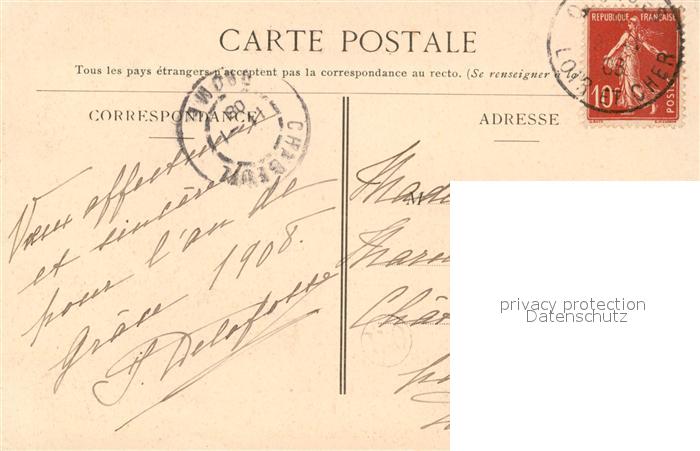 CARTE POSTALE
Tous les pays étrangers n'acceptent pas la correspondance au recto. (Se renseigner à
CORRESPONDANCE
ADRESSE
REPUBLIQUE FRANÇAISE
10
POSTES
LOIR ET CHER
08
DROME
CHABEUIL
Vœux affectueux
et sincères
pour l'an de
Grâce 1908.
P. Delafosse
M
privacy protection
Datenschutz